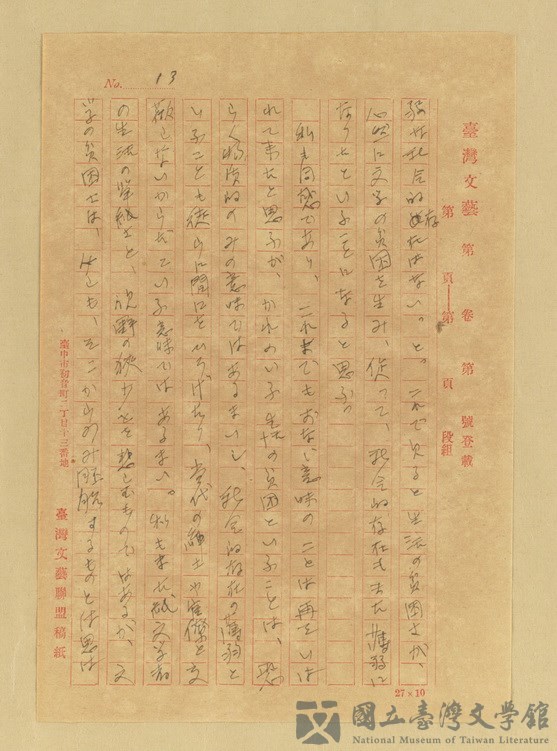 No. 13
臺灣文藝 第 卷 第 號登載
第 頁——第 頁 段組
弱な社会的存在はない。と。これで見ると生活の貧困さが、
必然に文学の貧困を生み、従って、社会的存在もまた薄弱に
なりたといふことになると思ふ。
私も同感であり、これまでもおなじ意味のことは再三いは
れて来たと思ふが、かれのいふ生活の貧困といふことは、恐
らく物質的のみの意味ではあるまいし、社会的存在の薄弱と
いふことも徒らに間口をひろげたり、当代の紳士や官僚と交
歓しないからだといふ意味ではあるまい。私もまた我文学者
の生活の単純さと、視野の狭少さを悲しむものではあるが、文
学の貧困さは、必しも、そこからのみ胚胎するものとは思は
臺中市初音町二丁目十三番地
臺灣文藝聯盟稿紙
27×10
國立臺灣文學館
National Museum of Taiwan Literature